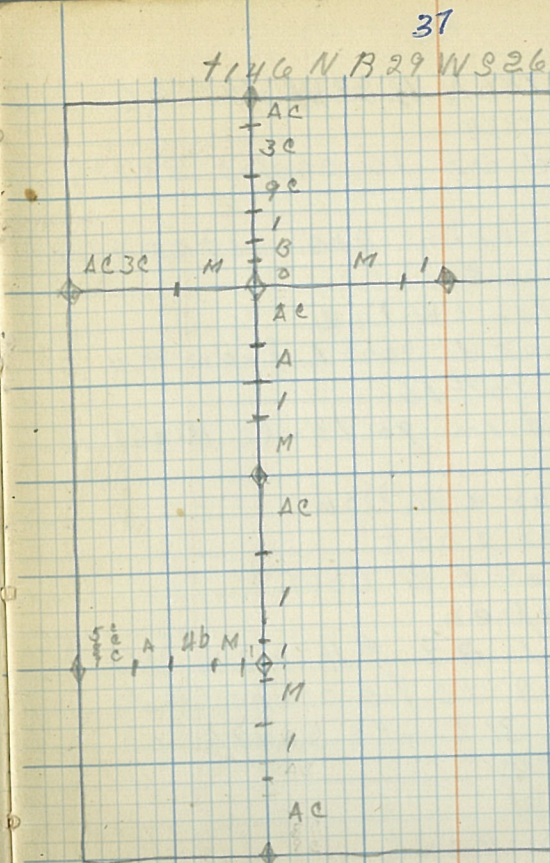 37
T146 N R29 W S26
AC
3C
9C
1
B
AC3C M
M 1
AC
A
1
M
AC
1
A 4b M
M
1
AC